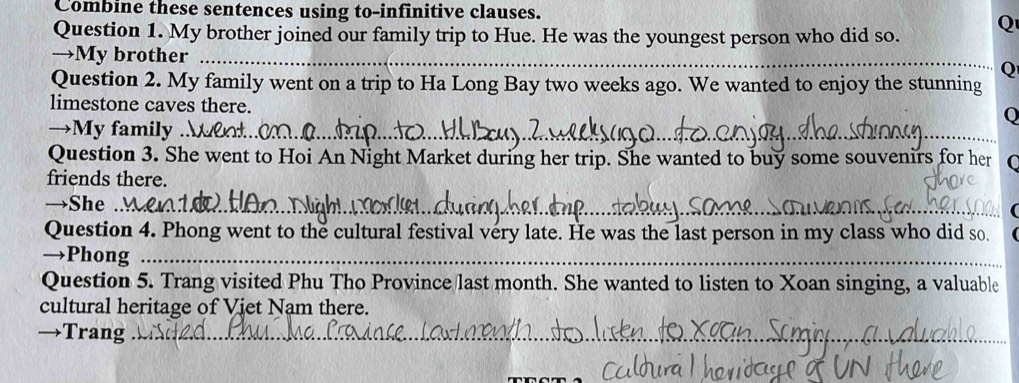 Combine these sentences using to-infinitive clauses.
Question 1. My brother joined our family trip to Hue. He was the youngest person who did so.
→My brother
Question 2. My family went on a trip to Ha Long Bay two weeks ago. We wanted to enjoy the stunning
limestone caves there.
→My family went on a trip to HLBay 2 weeks ago to enjoy the stunning
Question 3. She went to Hoi An Night Market during her trip. She wanted to buy some souvenirs for her
friends there.
there
→She went to HAn Night market during her trip to buy some souvenirs for her
Question 4. Phong went to the cultural festival very late. He was the last person in my class who did so.
→Phong
Question 5. Trang visited Phu Tho Province last month. She wanted to listen to Xoan singing, a valuable
cultural heritage of Viet Nam there.
→Trang visited Phu Tho Province last month to listen to Xoan Singing, a valuable
cultural heritage of VN there